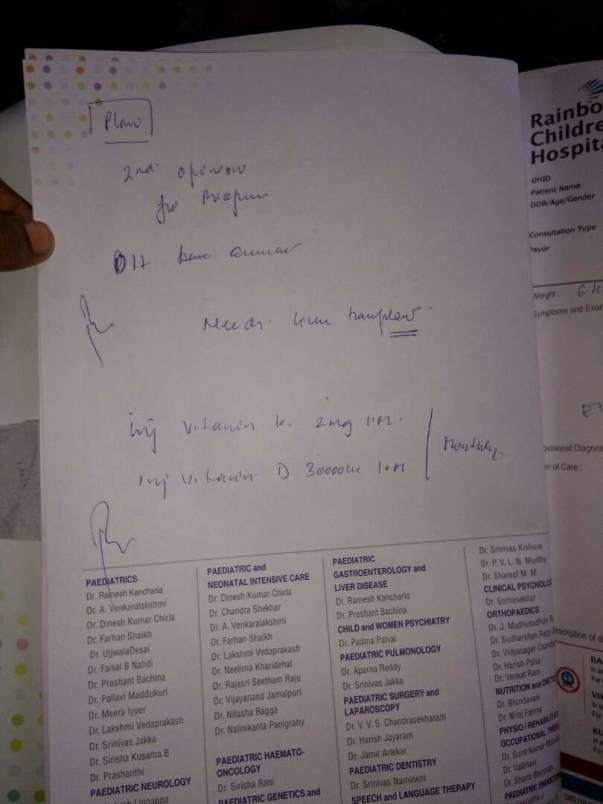 Plan
2nd opinion
for
Needs liver transplant
inj vitamin k. 2mg I.M.
inj vitamin D 30000 I.M
Monthly
PAEDIATRICS
Dr. Ramesh Kancharla
Dr. A. Venkaralakshmi
Dr. Dinesh Kumar Chirla
Dr. Farhan Shaikh
Dr. UjjwalaDesai
Dr. Faisal B Nahdi
Dr. Prashant Bachina
Dr. Pallavi Maddukuri
Dr. Meera Iyyer
Dr. Lakshmi Vedaprakash
Dr. Srinivas Jakka
Dr. Sirisha Kusama B
Dr. Prashanthi
PAEDIATRIC NEUROLOGY
PAEDIATRIC and
NEONATAL INTENSIVE CARE
Dr. Dinesh Kumar Chirla
Dr. Chandra Shekhar
Dr. A. Venkaralakshmi
Dr. Farhan Shaikh
Dr. Lakshmi Vedaprakash
Dr. Neelima Kharidehal
Dr. Rajasri Seetham Raju
Dr. Vijayanand Jamalpuri
Dr. Nitasha Bagga
Dr. Nalinikanta Panigrahy
PAEDIATRIC HAEMATO-
ONCOLOGY
Dr. Sirisha Rani
PAEDIATRIC GENETICS and
PAEDIATRIC
GASTROENTEROLOGY and
LIVER DISEASE
Dr. Ramesh Kancharla
Dr. Prashant Bachina
CHILD and WOMEN PSYCHIATRY
Dr. Padma Palvai
PAEDIATRIC PULMONOLOGY
Dr. Aparna Reddy
Dr. Srinivas Jakka
PAEDIATRIC SURGERY and
LAPAROSCOPY
Dr. V. V. S. Chandrasekharam
Dr. Harish Jayaram
Dr. Jamir Arlekar
PAEDIATRIC DENTISTRY
Dr. Srinivas Namineni
SPEECH and LANGUAGE THERAPY
Dr. Srinivas Kishore
Dr. P. V. L. N. Murthy
Dr. Shareef M. M.
CLINICAL PSYCHOLO
Dr. Somasekhar
ORTHOPAEDICS
Dr. J. Madhusudhan
Dr. Sudharshan Reddy
Dr. Vidyasagar
Dr. Harish Palva
Dr. Venkat Ram
NUTRITION and
Dr. Brundavani
Dr. Niroj Fatima
PHYSIO / REHABILITAT
OCCUPATIONAL
Dr. Sunil Kumar
Dr. Vaibhavi
PAEDIATRIC
Rainbo
Childre
Hospita
UHID
Patient Name
DOB/Age/Gender
Consultation Type
Payor
Weight:
Symptoms and Exam
visional Diagnos
n of Care